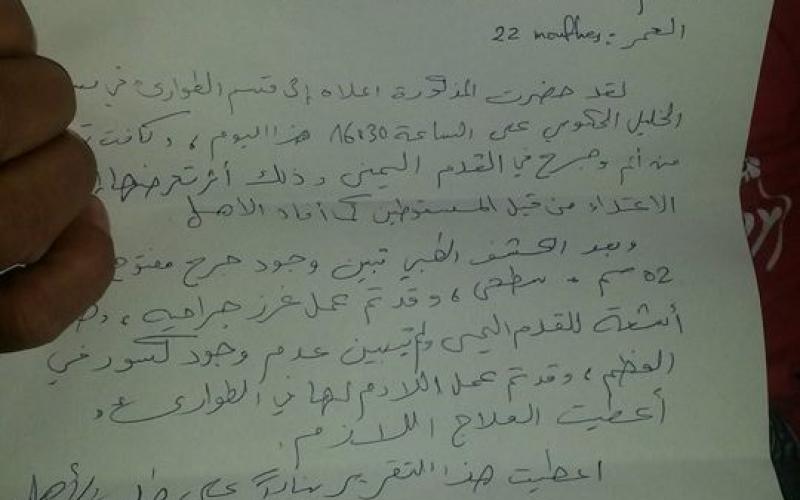 العمر: 22 months
لقد حضرت المذكورة اعلاه إلى قسم الطوارئ في
الخليل الحكومي على الساعة 16:30 هذا اليوم، وكانت
من ألم وجرح في القدم اليمنى وذلك أثر تعرضها
الاعتداء من قبل المستوطنين كما أفاد الأهل.
وبعد الكشف الطبي تبين وجود جرح مفتوح
02 سم - سطحي، وقد تم عمل غرز جراحيه،
أشعة للقدم اليمنى ولم يتبين عدم وجود كسور في
العظم، وقد تم عمل اللازم لها في الطوارئ و
أعطيت العلاج اللازم.
اعطيت هذا التقرير بناءً على طلب الأهل